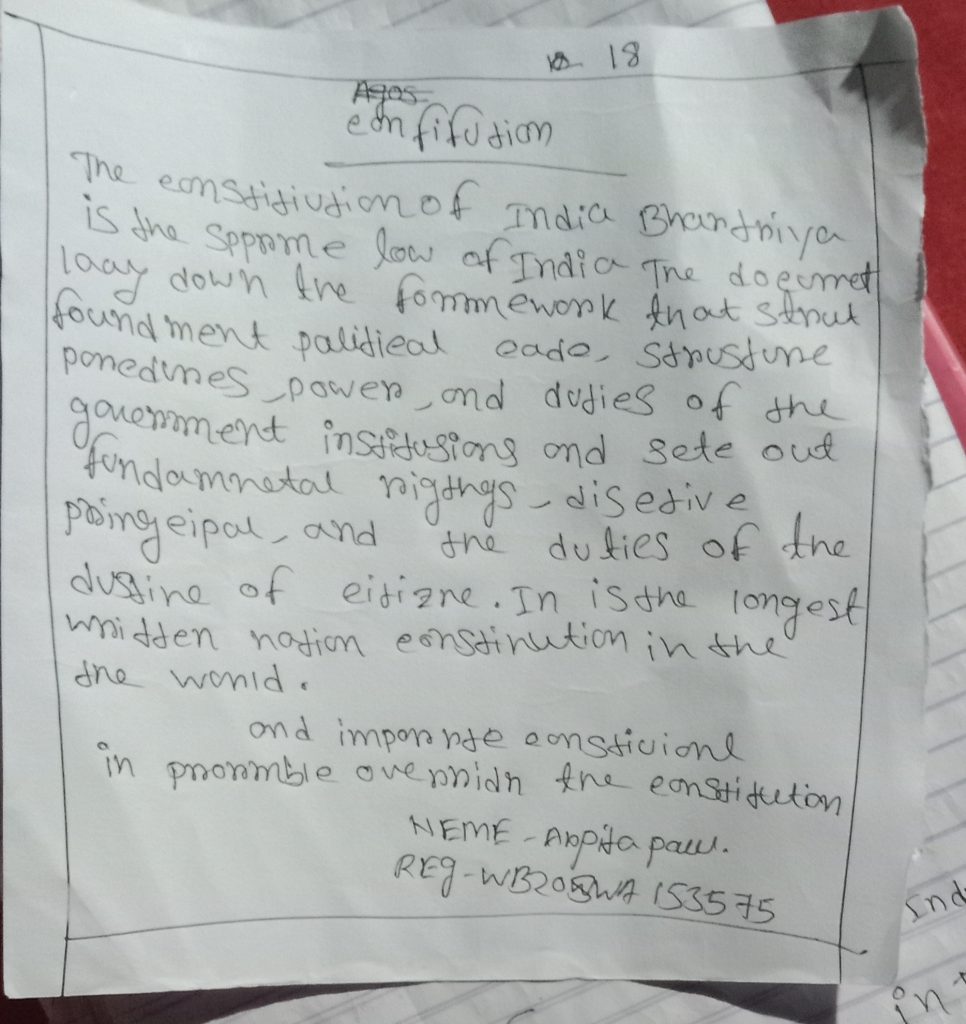 18
Agos
confifution
The constitiution of India Bhantriya
is the Spprme low of India The documet
laay down the formmework that strut
foundment palitical cade, strusture
poredures, power, and duties of the
gouernment institusions and sete out
fundamnetal rigthgs, disetive
pringcipal, and the duties of the
dustine of citizne. In is the longest
written nation constinution in the
the world.
and imporrte consticionl
in prormble overridn the constitution
NEME - Arpita paul.
REG - WB20SWA 153575
ind
in